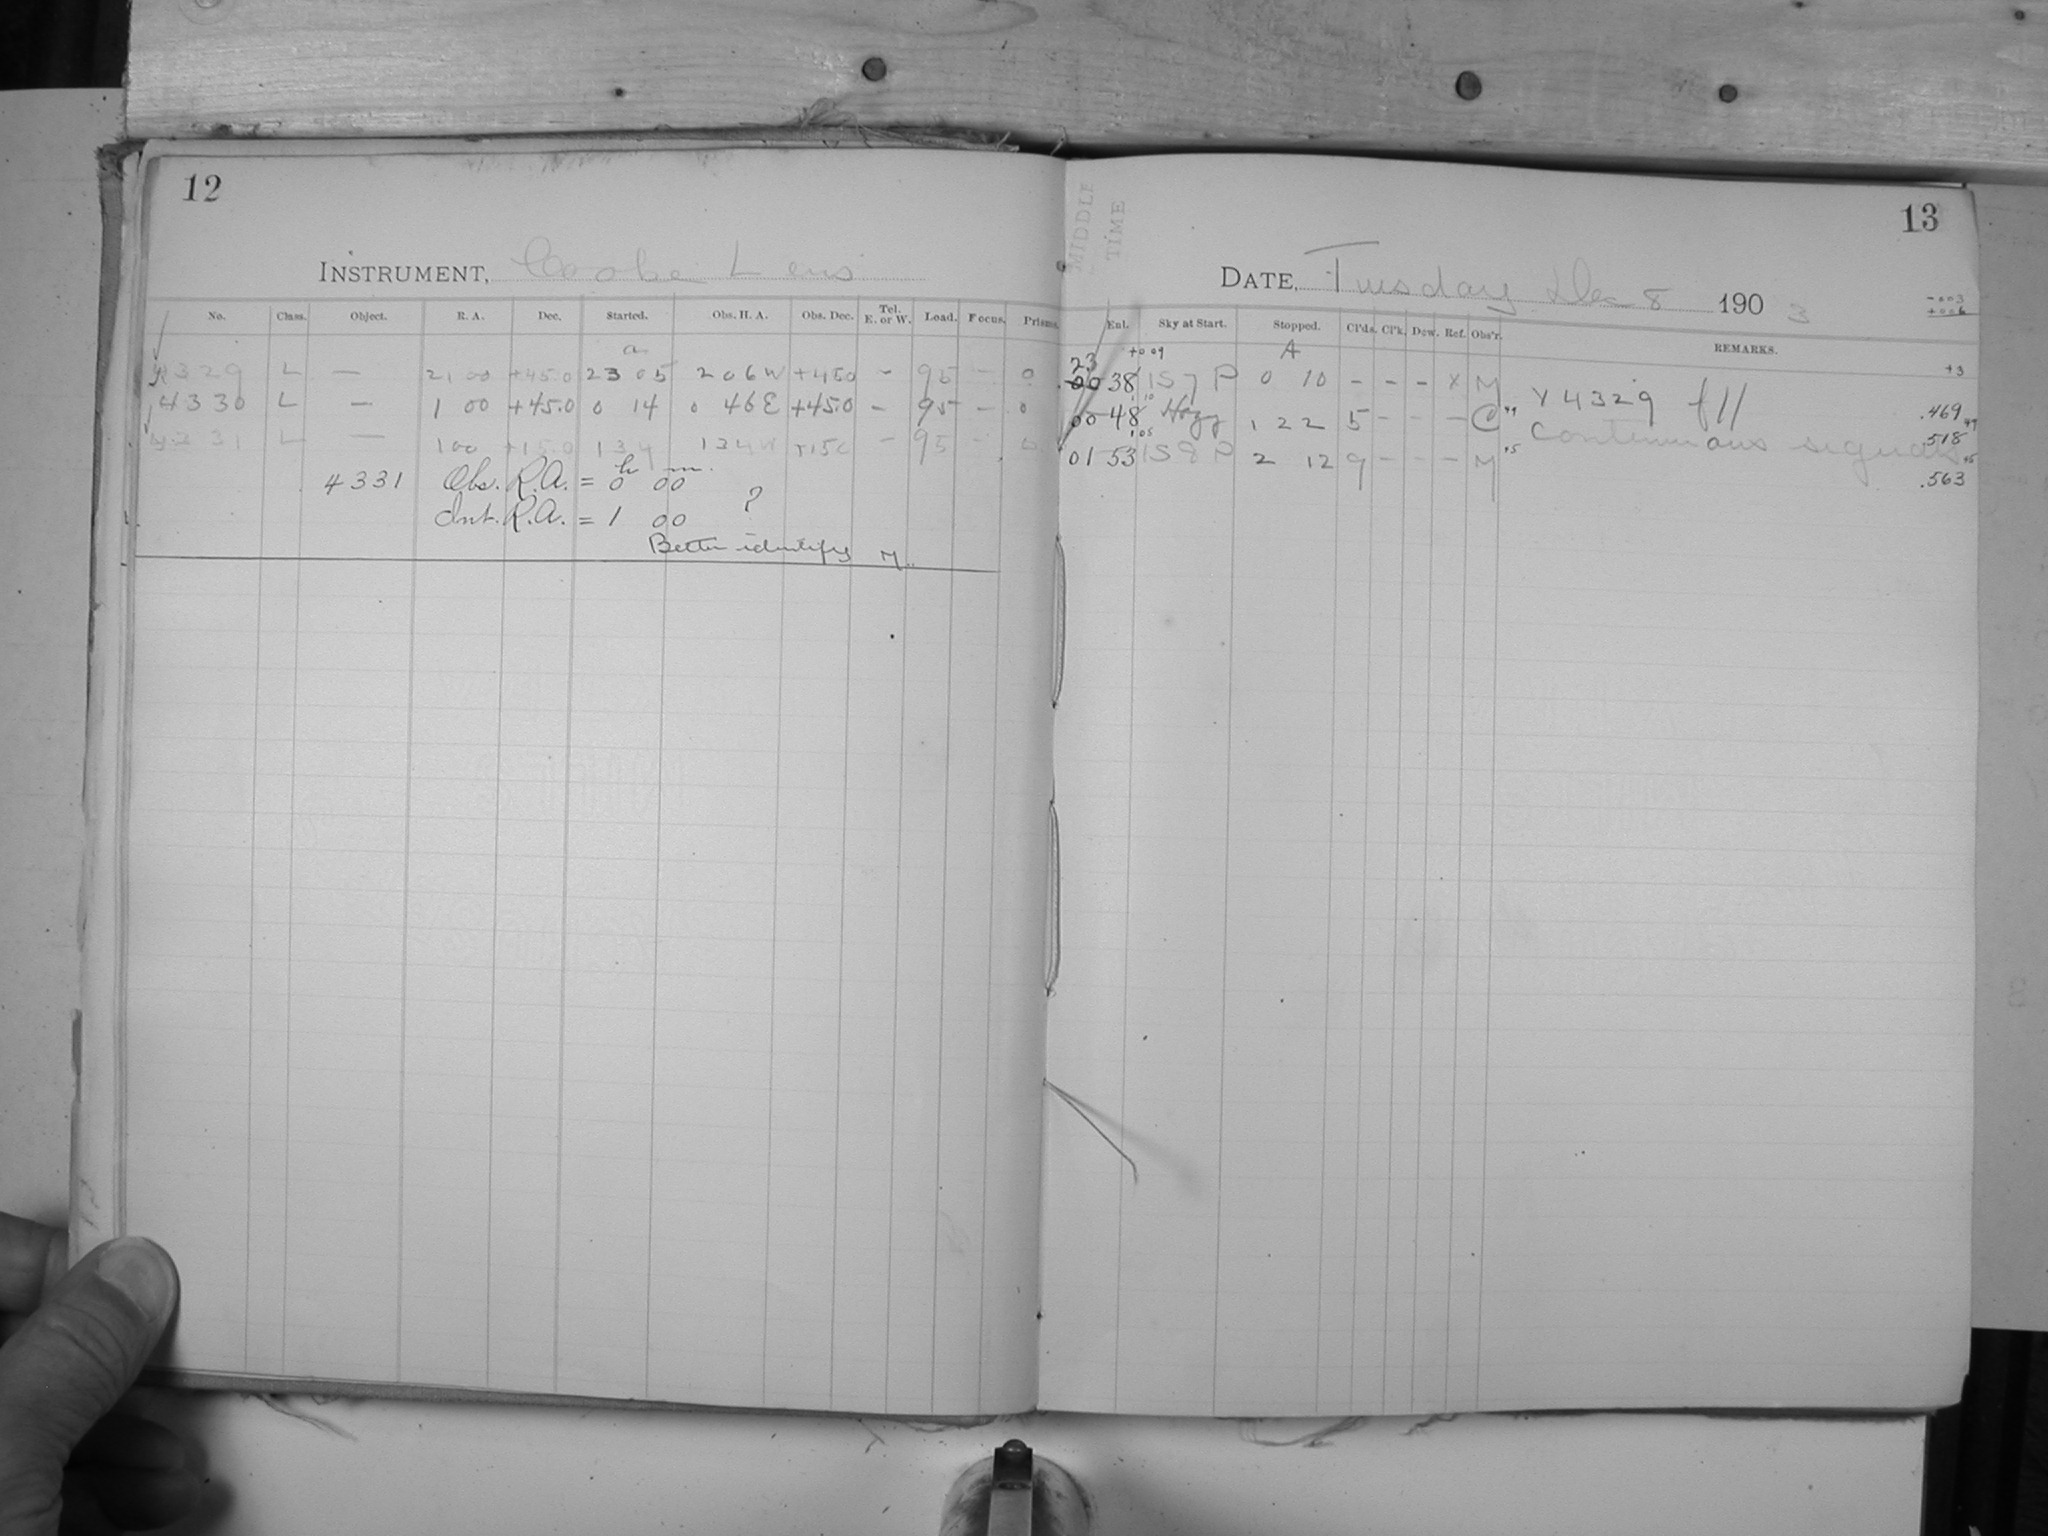 12
INSTRUMENT, Cooke Lens
No. Class. Object. R. A. Dec. Started. Obs. H. A. Obs. Dec. Tel. E. or W. Load. Focus. Prisms.
a
4329 L — 21 00 +45.0 23 05 2 06 W +450 - 95 - 0
4330 L — 1 00 +45.0 0 14 0 46 E +45.0 - 95 - 0
4331 L — 1 00 +15.0 1 34 1 34 W +150 - 95 - 0
4331 Obs. R.A. = 0h 00m.
Ant. R.A. = 1 00 ?
Better identify M.
13
MIDDLE
TIME
DATE, Tuesday Dec 8 1903
-.003
+.006
Ent. Sky at Start. Stopped. Cl'ds. Cl'k. Dew. Ref. Obs'r. REMARKS.
+009 A +3
23 38 1S7P 0 10 - - - X M X 4329 fll .469
1 10 49 49
00 48 Hazy 1 22 5 - - - C Continuous signals .518
1 05 45 45
01 53 1S8P 2 12 9 - - - M .563